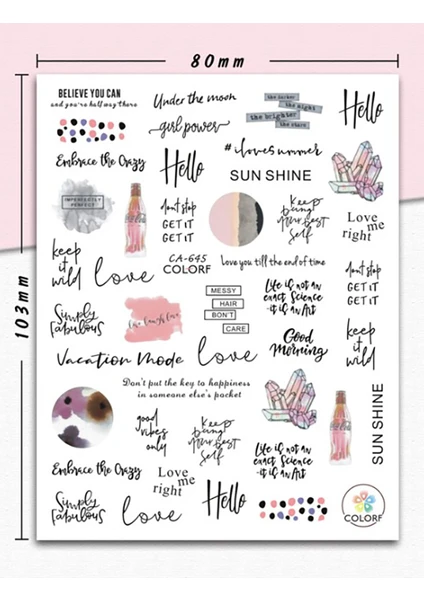 80mm
103mm
BELIEVE YOU CAN
and you're half way there
Under the moon
girl power
the darker
the night
the brighter
the stars
Hello
Embrace the Crazy
Hello
#ilovesummer
SUN SHINE
IMPERFECTLY
PERFECT
don't stop
GET IT
GET IT
Keep
being
your best
self
Love
me
right
keep
it
wild
love
CA-645
COLORF
Love you till the end of time
don't stop
GET IT
GET IT
Simply
fabulous
MESSY
HAIR
DON'T
CARE
Life is not an
exact Science
-it is an Art
Vacation Mode
love
Good
Morning
keep
it
wild
Don't put the key to happiness
in someone else's pocket
SUN SHINE
good
vibes
only
Keep
being
your best
self
Life is not an
exact Science
-it is an Art
Embrace the Crazy
Love
me
right
Simply
fabulous
love
Hello
COLORF